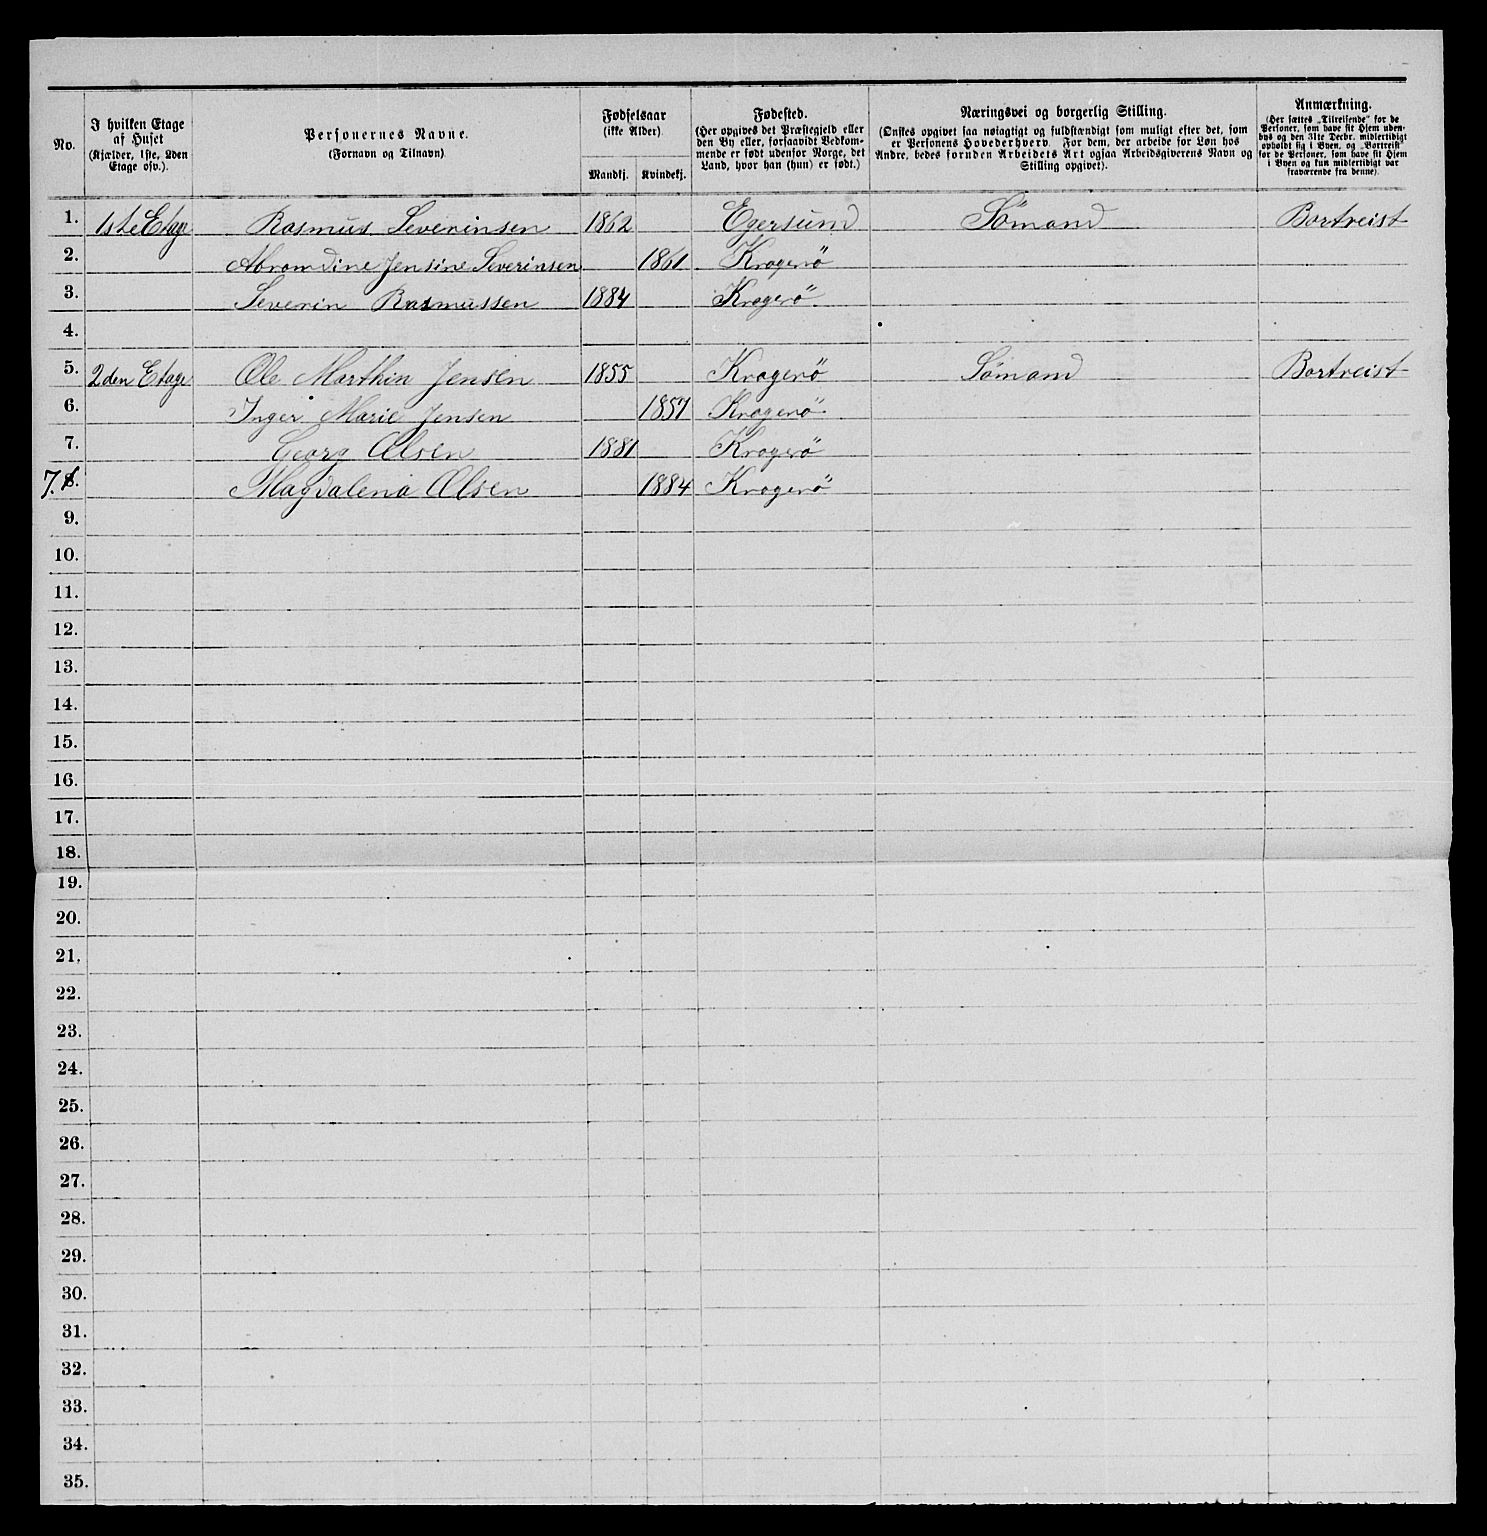 No.
I hvilken Etage af Huset (Kjælder, 1ste, 2den Etage osv.).
Personernes Navne. (Fornavn og Tilnavn)
Fødselsaar (ikke Alder)
Mandkj. Kvindekj.
Fødested. (Her opgives det Præstegjeld eller den By eller, forsaavidt Vedkommende er født udenfor Norge, det Land, hvor han (hun) er født.)
Næringsvei og borgerlig Stilling.
(Ønskes opgivet saa nøiagtigt og fuldstændigt som muligt efter det, som er Personens Hovederhverv. For dem, der arbeide for Løn hos Andre, bedes foruden Arbeidets Art ogsaa Arbeidsgiverens Navn og Stilling opgivet).
Anmærkning.
(Her sættes „Tilreisende“ for de Personer, som have sit Hjem udenbys og den 31te Decbr. midlertidigt opholdt sig i Byen, og „Bortreist“ for de Personer, som have sit Hjem i Byen og kun midlertidigt var fraværende fra denne).
1. 1ste Etage Rasmus Severinsen 1862 Egersund Sömand Bortreist
2. Abramdine Jensine Severinsen 1861 Kragerö
3. Severin Rasmussen 1884 Kragerö
4.
5. 2den Etage Ole Marthin Jensen 1855 Kragerö Sömand Bortreist
6. Inger Marie Jensen 1857 Kragerö
7. Georg Olsen 1881 Kragerö
7. 8. Magdalena Olsen 1884 Kragerö
9.
10.
11.
12.
13.
14.
15.
16.
17.
18.
19.
20.
21.
22.
23.
24.
25.
26.
27.
28.
29.
30.
31.
32.
33.
34.
35.